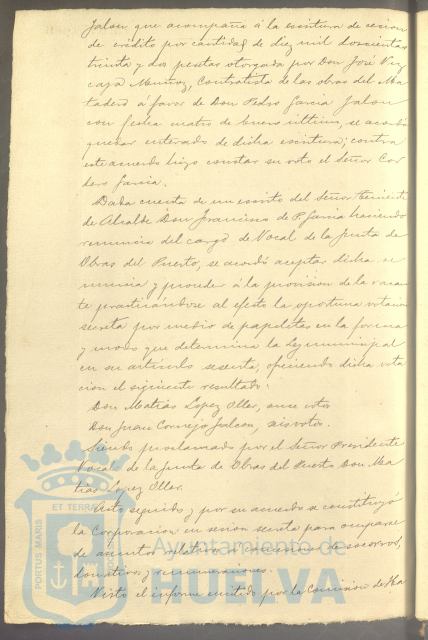 Jalon que acompaña á la escritura de cesion
de crédito por cantidad de diez mil doscientas
treinta y dos pesetas otorgada por Don José Viz
caya Muñoz, Contratista de las obras del Ma
tadero á favor de Don Pedro Garcia Jalon
con fecha cuatro de Enero último, se acordó
quedar enterado de dicha escritura; contra
este acuerdo hizo constar su voto el Señor Cor
dero Garcia.
Dada cuenta de un escrito del Señor Teniente
de Alcalde Don Francisco de P. Garcia haciendo
renuncia del cargo de Vocal de la Junta de
Obras del Puerto, se acordó aceptar dicha re
nuncia y proceder á la provision de la vacan
te practicándose al efecto la oportuna votacion
secreta por medio de papeletas en la forma
y modo que determina la Ley municipal
en su artículo sesenta, ofreciendo dicha vota
cion el siguiente resultado:
Don Matías Lopez Oller, once votos
Don Juan Cornejo Jalon, seis votos.
Siendo proclamado por el Señor Presidente
Vocal de la Junta de Obras del Puerto Don Ma
tías Lopez Oller.
Acto seguido y por su acuerdo se constituyó
la Corporacion en sesion secreta para ocuparse
de asuntos relativos a concesiones de socorros,
donativos y remuneraciones.
Visto el informe emitido por la Comision de Ha
PORTUS MARIS ET TERRAE
Ayuntamiento de
HUELVA